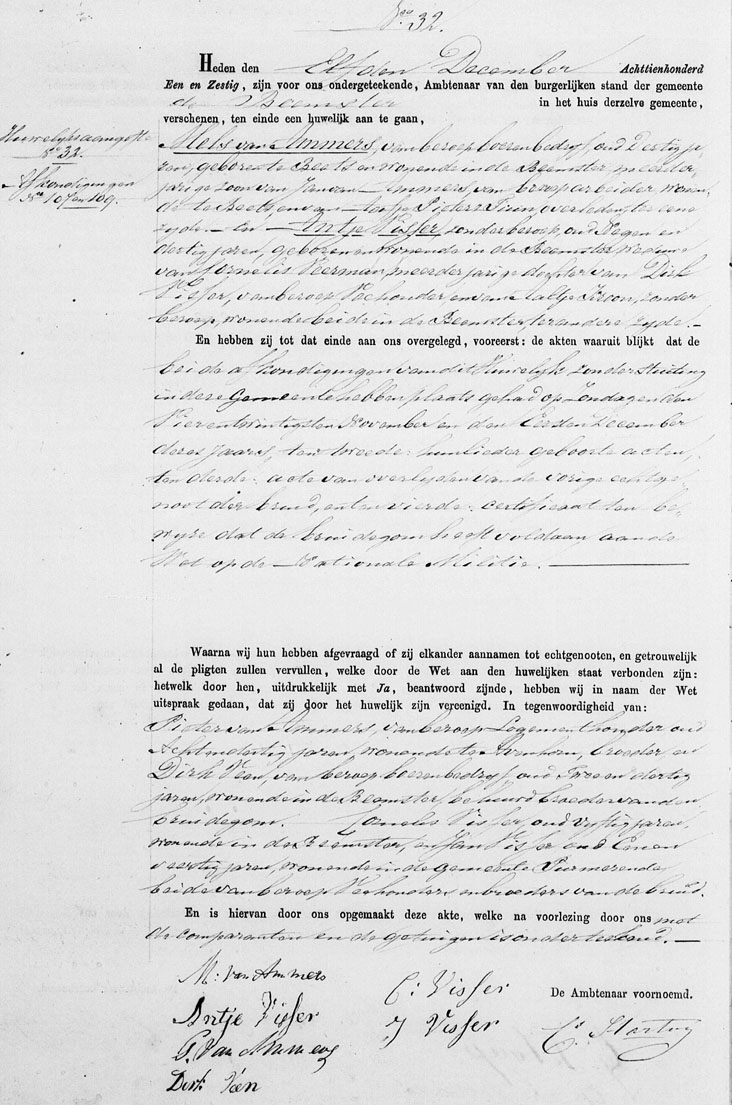 No 32.
Heden den Elfden December Achttienhonderd
Een en Zestig, zijn voor ons ondergeteekende, Ambtenaar van den burgerlijken stand der gemeente
de Beemster in het huis derzelve gemeente,
verschenen, ten einde een huwelijk aan te gaan,
Huwelijksaangifte
No 32.
Afkondigingen
No 107 en 109.
Mels van Ammers, van beroep boerenbedryf, oud Dertig ja-
ren, geboren te Beets en wonende in de Beemster, meerder-
jarige zoon van Jan van Ammers, van beroep arbeider wonen-
de te Beets, en van Pieters overleden, ter eene
zyde. En Antje Visser, zonder beroep, oud Negen en
dertig jaren, geboren en wonende in de Beemster, weduwe
van Cornelis Veerman, meerderjarige dochter van Dirk
Visser, van beroep Veehouder, en van Aaltje Kroon, zonder
beroep, wonende beide in de Beemster, ter andere zyde.
En hebben zij tot dat einde aan ons overgelegd, vooreerst: de akten waaruit blijkt dat de
beide afkondigingen van dit Huwelijk zonder stuiting
in deze Gemeente hebben plaats gehad op Zondagen den
Vierentwintigsten November en den Eersten December
dezes jaars, ten tweede: hunlieder geboorte acten,
ten derde: acte van overlyden van de vorige echtge-
noot der bruid, en ten vierde: certificaat ten be-
wyze dat de bruidegom heeft voldaan aan de
Wet op de Nationale Militie.
Waarna wij hun hebben afgevraagd of zij elkander aannamen tot echtgenooten, en getrouwelijk
al de pligten zullen vervullen, welke door de Wet aan den huwelijken staat verbonden zijn:
hetwelk door hen, uitdrukkelijk met Ja, beantwoord zijnde, hebben wij in naam der Wet
uitspraak gedaan, dat zij door het huwelijk zijn vereenigd. In tegenwoordigheid van:
Pieter van Ammers, van beroep Logementhouder oud
Acht en dertig jaren, wonende te Avenhorn, broeder, en
Dirk Veen, van beroep boerenbedryf, oud Twee en dertig
jaren, wonende in de Beemster, behuwd broeder van den
bruidegom. Cornelis Visser, oud Vyftig jaren,
wonende in de Beemster, en Jan Visser oud Een en
veertig jaren, wonende in de Gemeente Purmerende
beide van beroep Veehouders en broeders van de bruid.
En is hiervan door ons opgemaakt deze akte, welke na voorlezing door ons met
de comparanten en de getuigen is onderteekend.
M: van Ammers
Antje Visser
P. Van Ammers
Dirk Veen
C: Visser
J Visser
De Ambtenaar voornoemd.